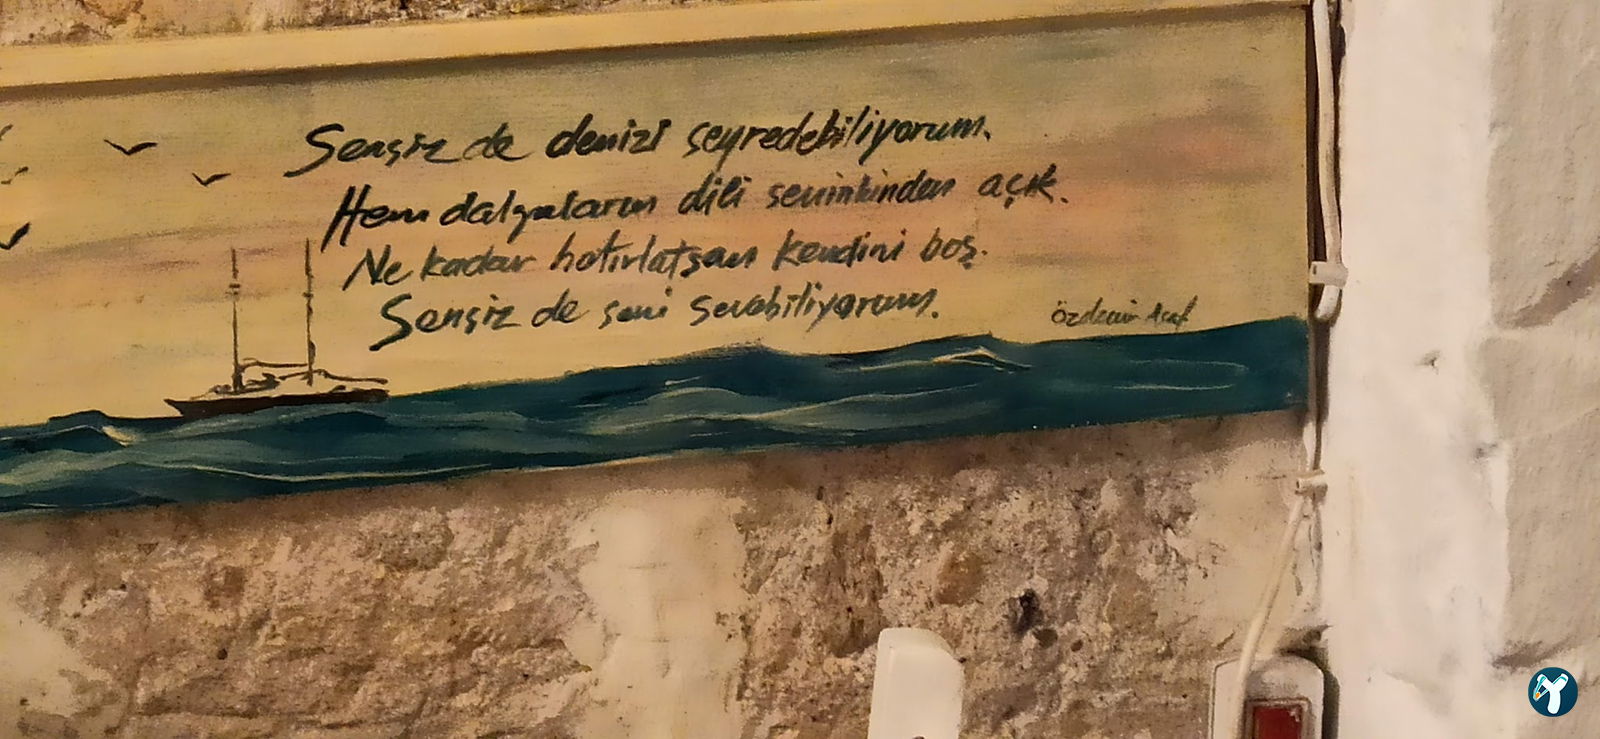 Sensiz de denizi seyredebiliyorum.
Hem dalgaların dili seninkinden açık.
Ne kadar hatırlatsan kendini boş.
Sensiz de seni sevebiliyorum.
Özdemir Asaf